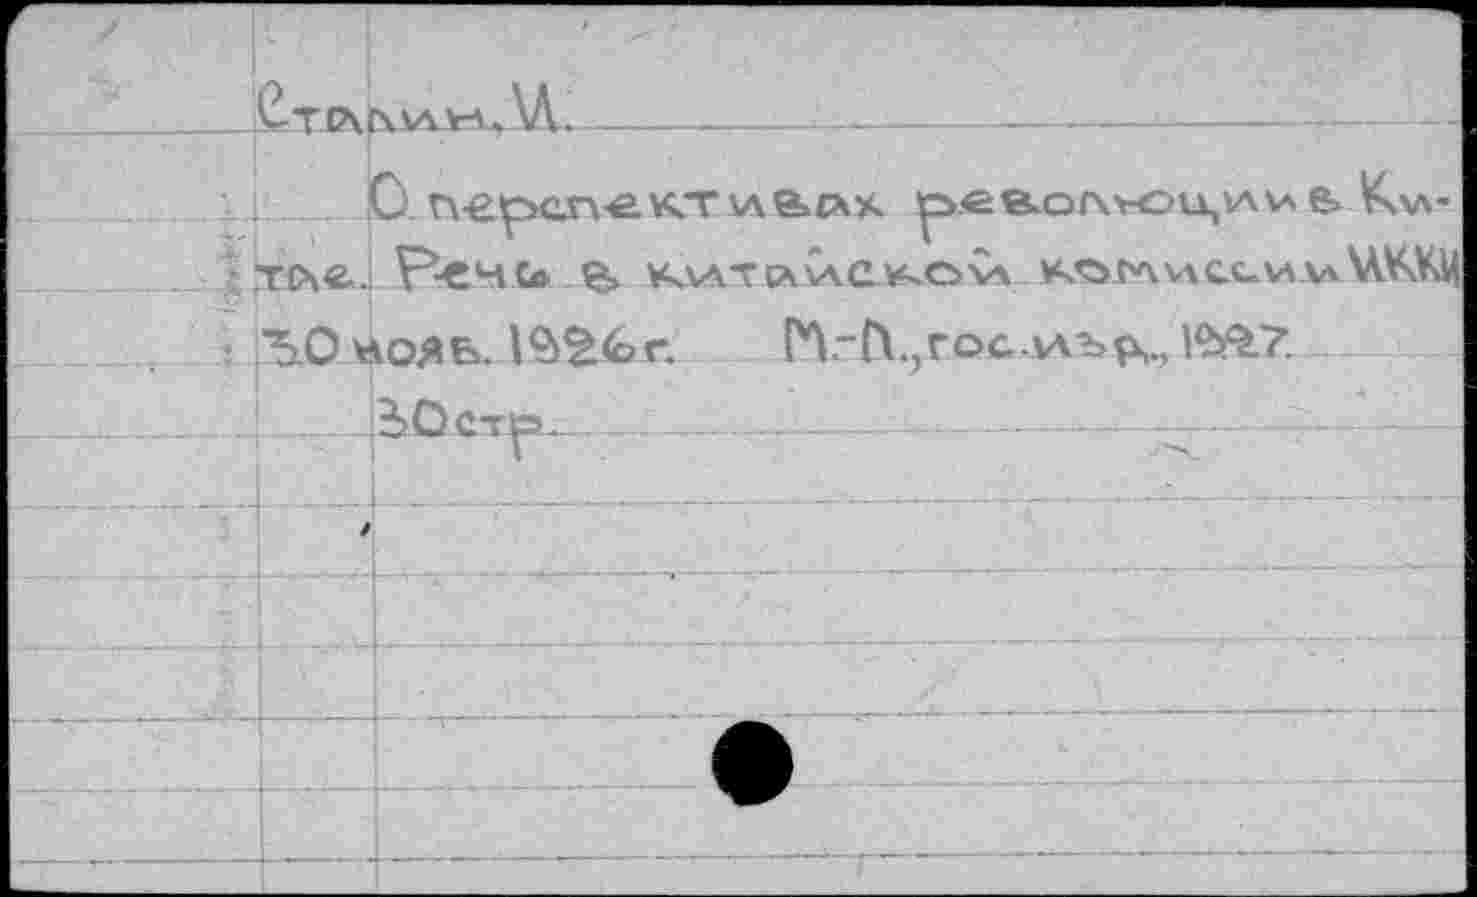 Сталин, И.
О перспективах революции в Ки-
тае. Речь в китайской комиссии ИККИ
30 нояб. 1926 г. М.-Л., гос. изд., 1927.
30 стр.